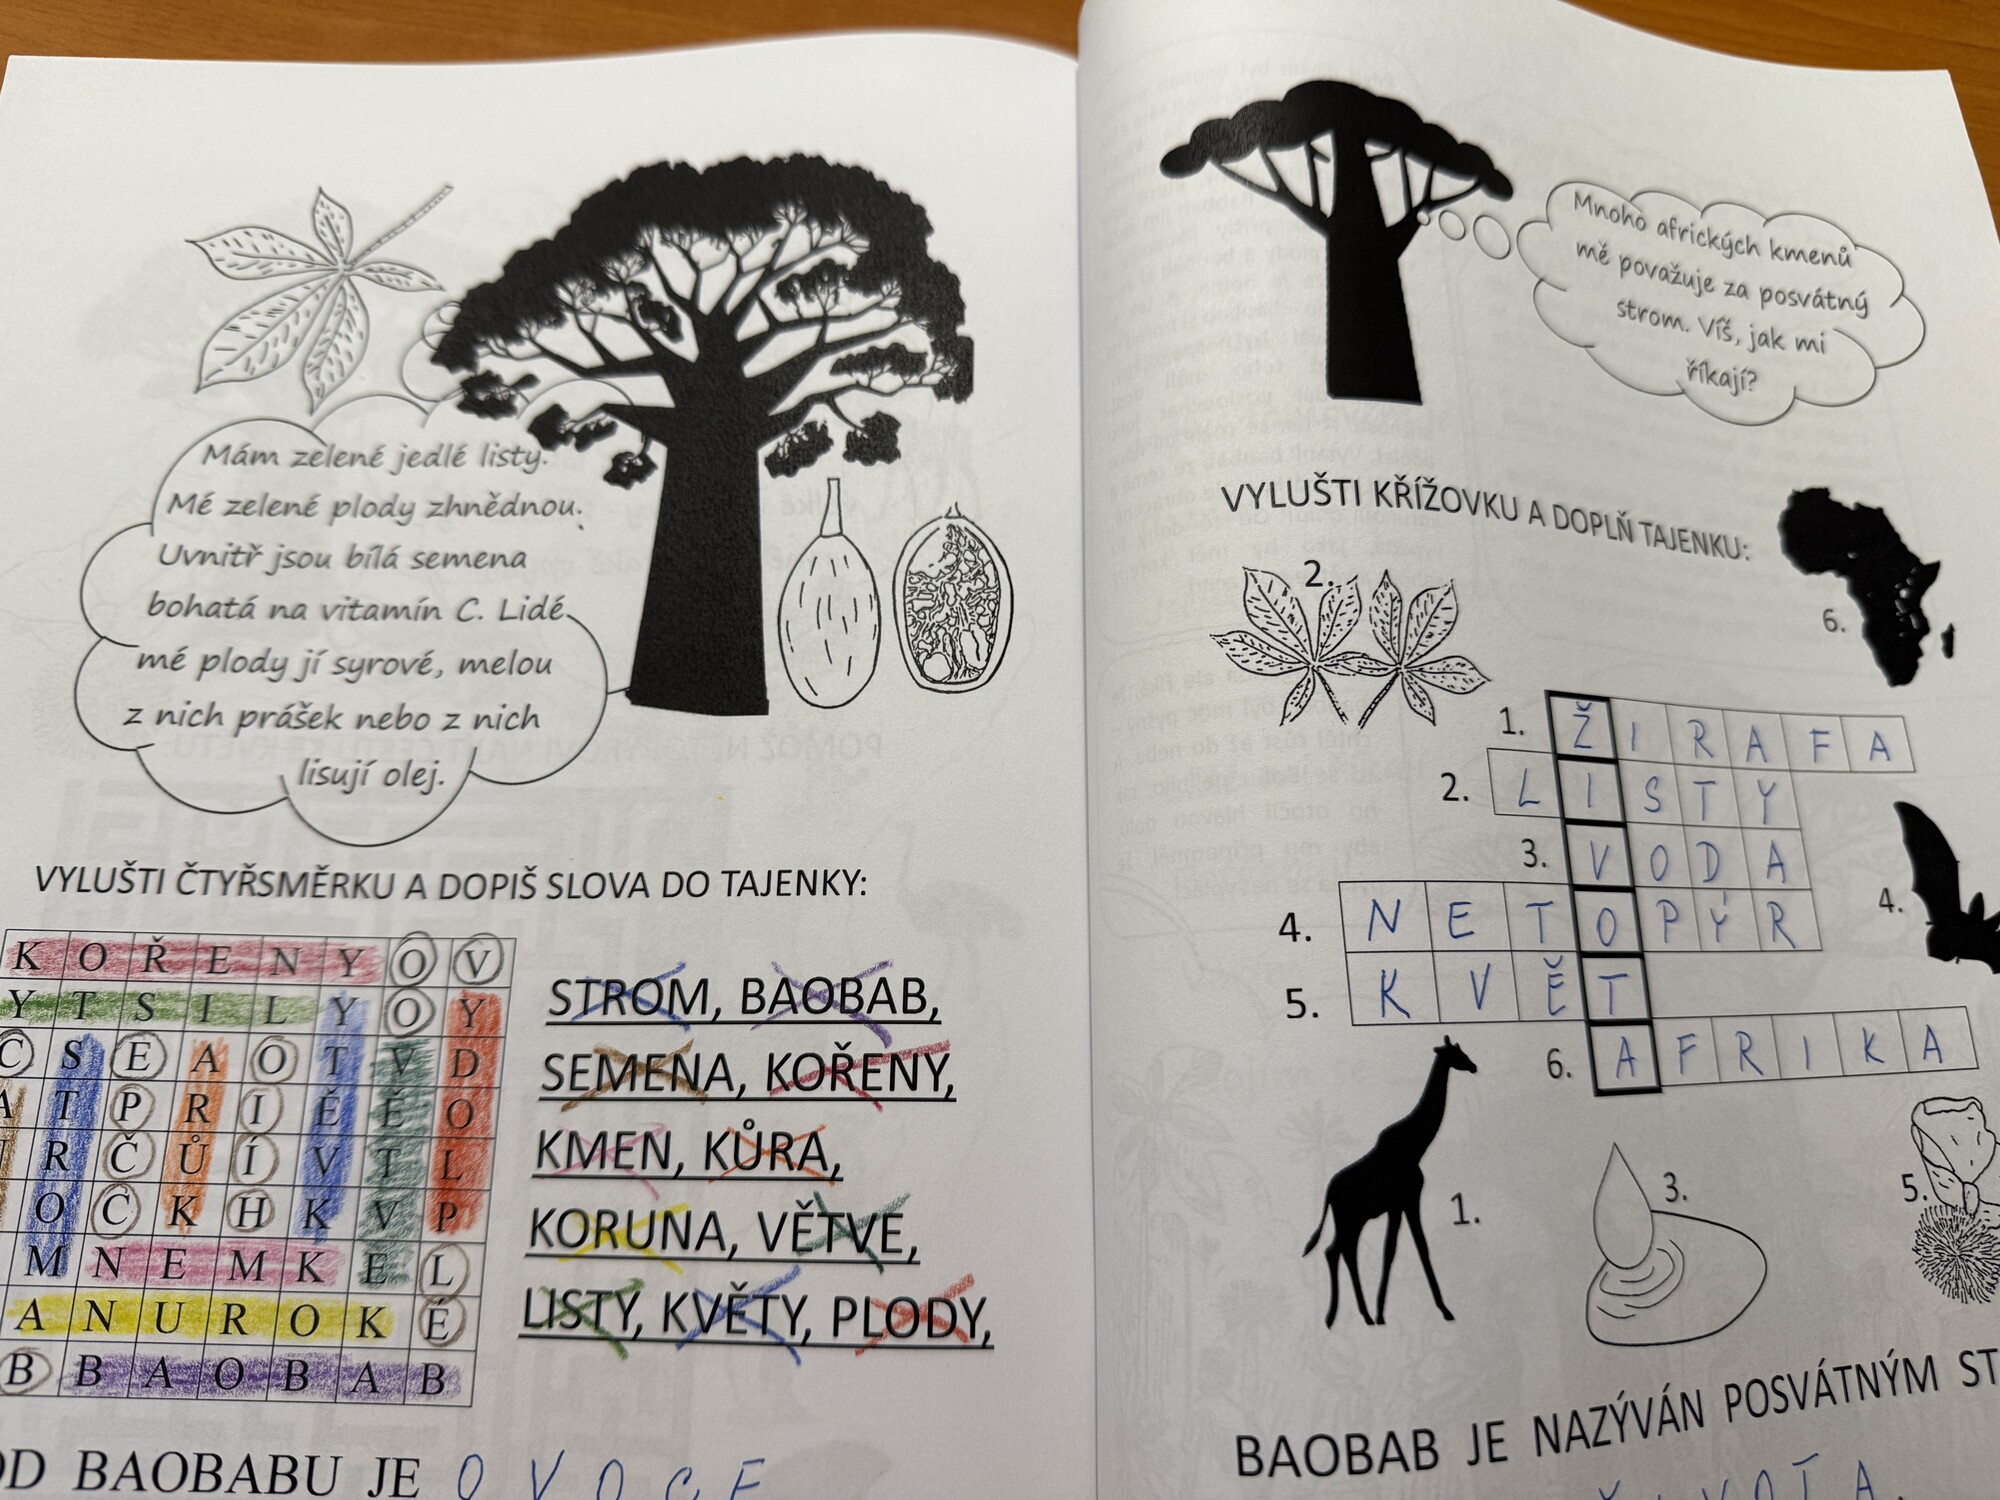 Mám zelené jedlé listy.
Mé zelené plody zhnědnou.
Uvnitř jsou bílá semena
bohatá na vitamín C. Lidé
mé plody jí syrové, melou
z nich prášek nebo z nich
lisují olej.
VYLUŠTI ČTYŘSMĚRKU A DOPIŠ SLOVA DO TAJENKY:
K O Ř E N Y O V
Y T S I L Y O Y
C S E A O T V D
A T P R I Ě Ě O
R Č Ů Í V T L
O Č K H K V P
M N E M K E L
A N U R O K É
B B A O B A B
STROM, BAOBAB,
SEMENA, KOŘENY,
KMEN, KŮRA,
KORUNA, VĚTVE,
LISTY, KVĚTY, PLODY,
BAOBABU JE O V O C E
Mnoho afrických kmenů
mě považuje za posvátný
strom. Víš, jak mi
říkají?
VYLUŠTI KŘÍŽOVKU A DOPLŇ TAJENKU:
2.
6.
1. Ž I R A F A
2. L I S T Y
3. V O D A
4. N E T O P Ý R
4.
5. K V Ě T
6. A F R I K A
1.
3.
5.
BAOBAB JE NAZÝVÁN POSVÁTNÝM